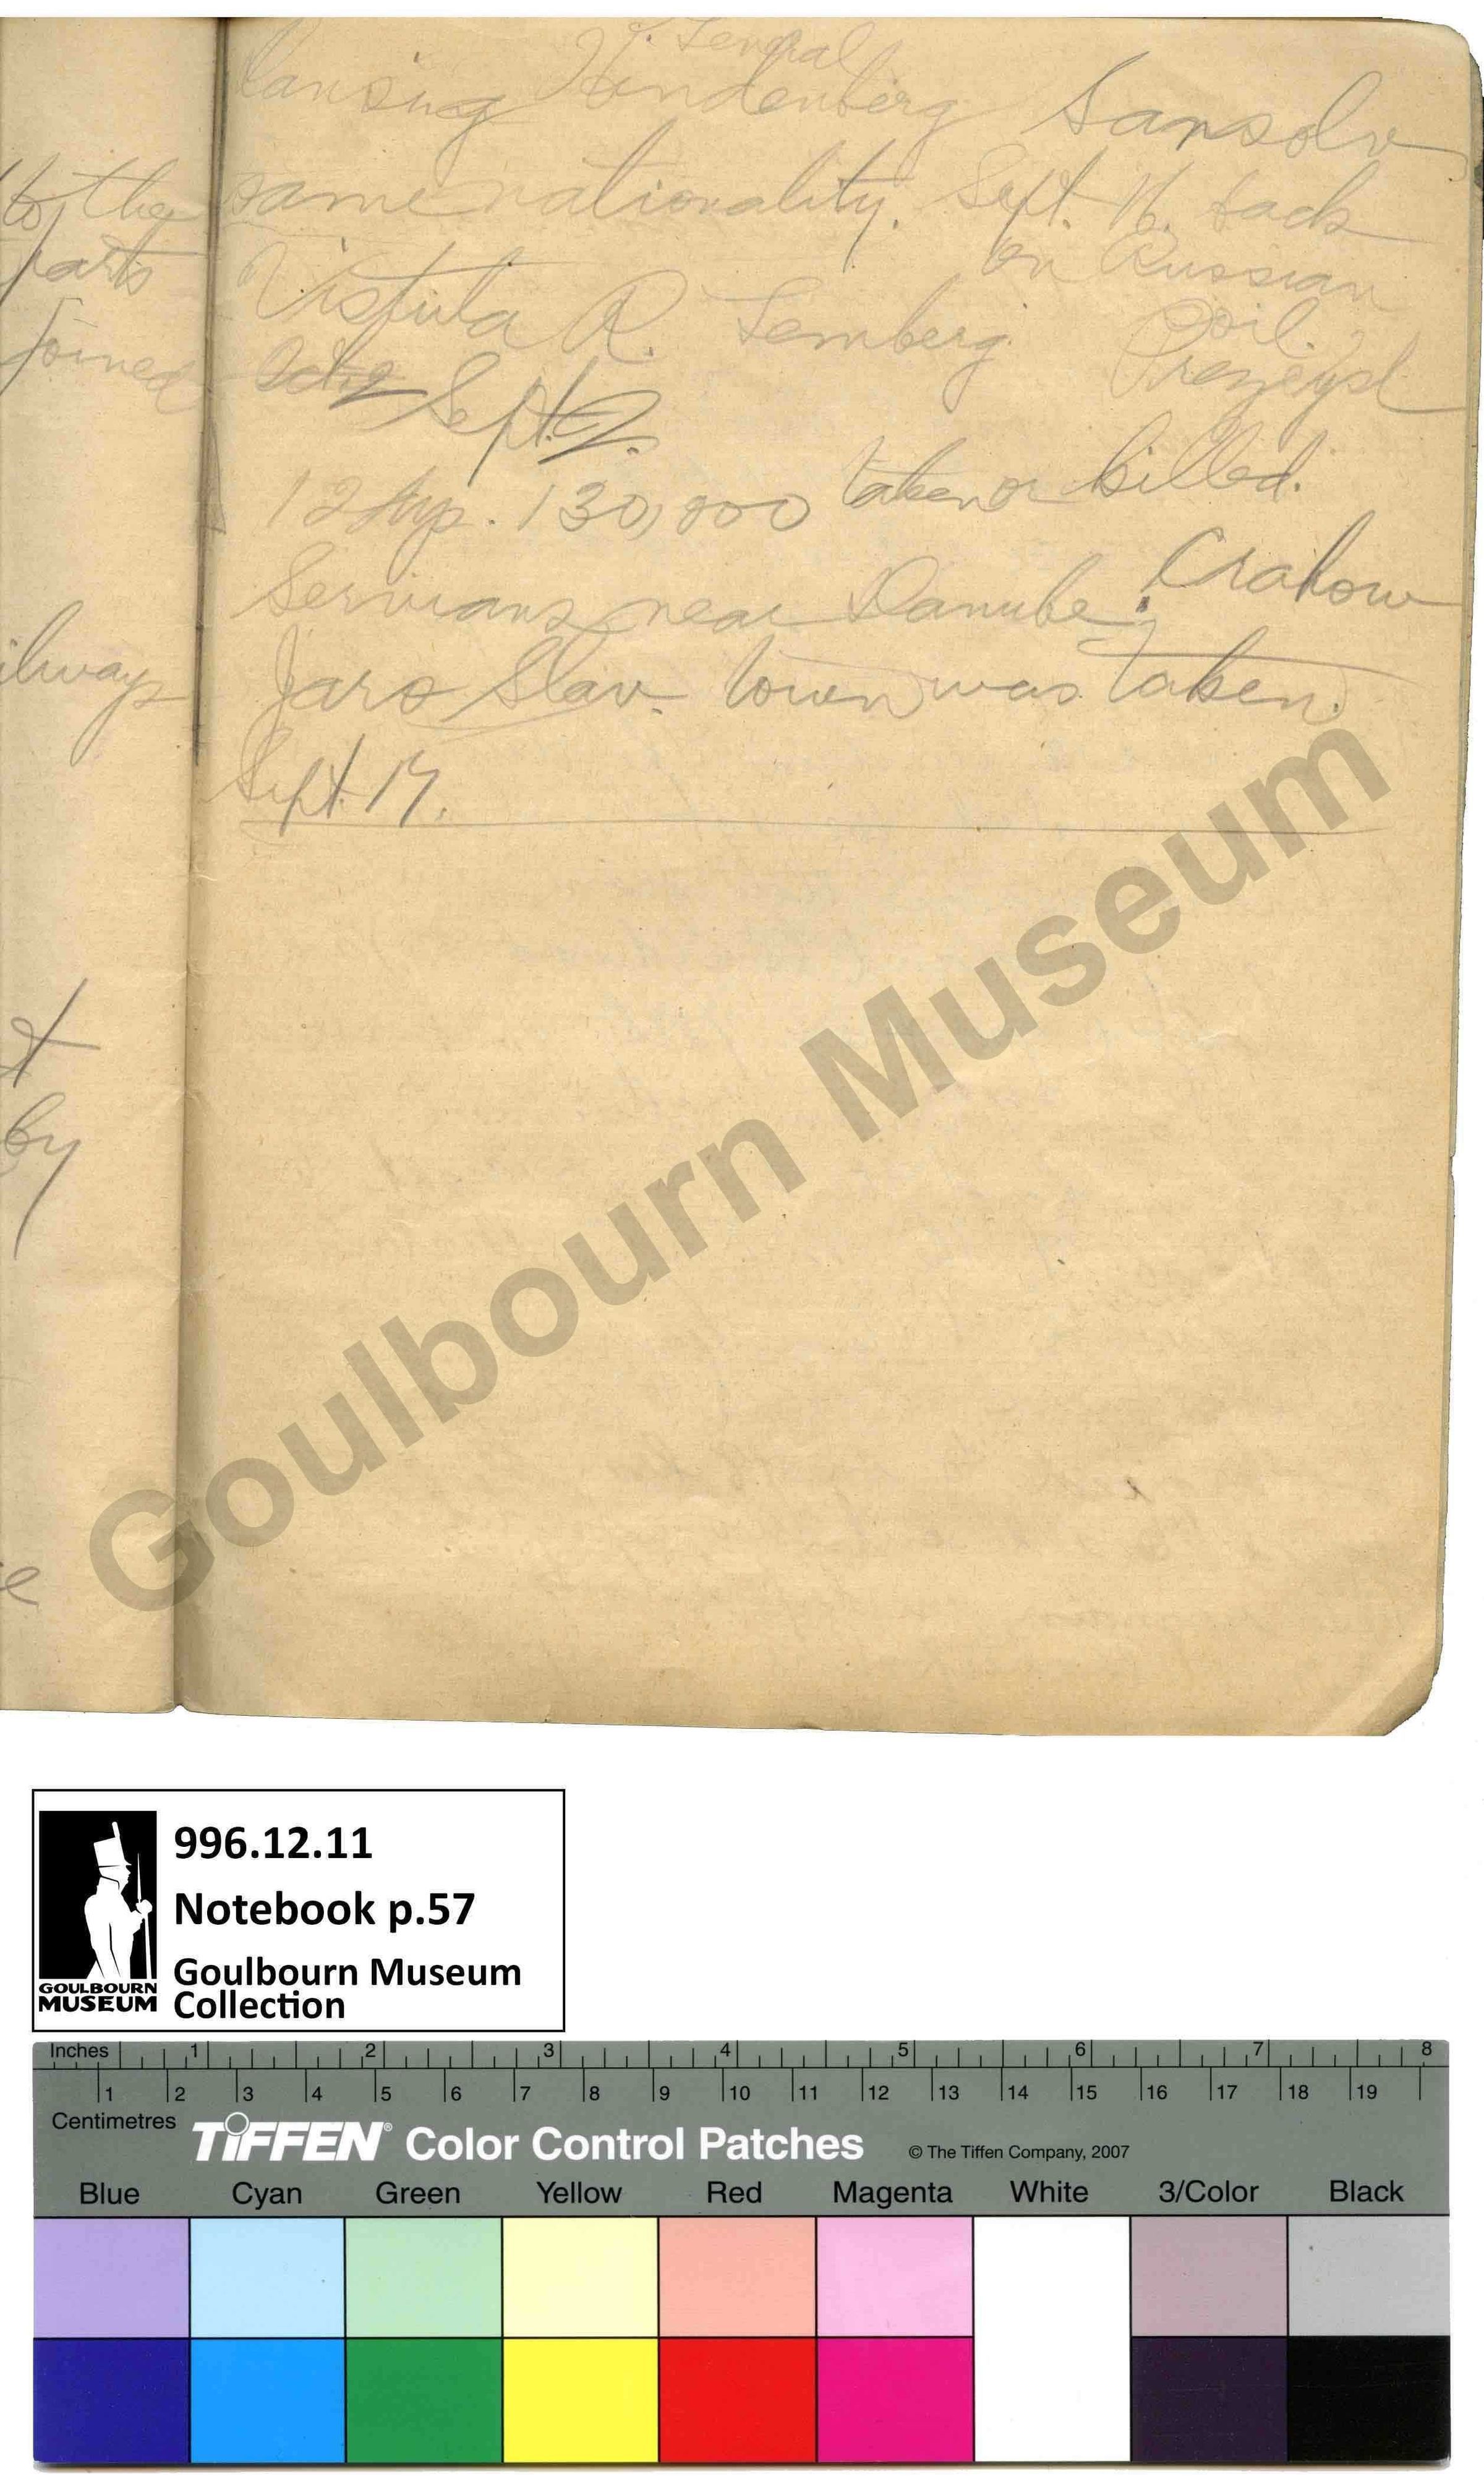 General
Hindenberg Sansolv
same nationality. Sept. 16. back
on Russian
soil.
Vistula R. Lemberg. Przeysl
Sept. 2.
130,000 taken or killed.
Servians near Danube. Crakow
Jaro Slav. town was taken.
Sept. 17.
to the
parts
joined
ilways
by
Goulbourn Museum
996.12.11
Notebook p.57
GOULBOURN
MUSEUM
Goulbourn Museum
Collection
Inches 1 2 3 4 5 6 7 8
1 2 3 4 5 6 7 8 9 10 11 12 13 14 15 16 17 18 19
Centimetres
TIFFEN® Color Control Patches © The Tiffen Company, 2007
Blue Cyan Green Yellow Red Magenta White 3/Color Black